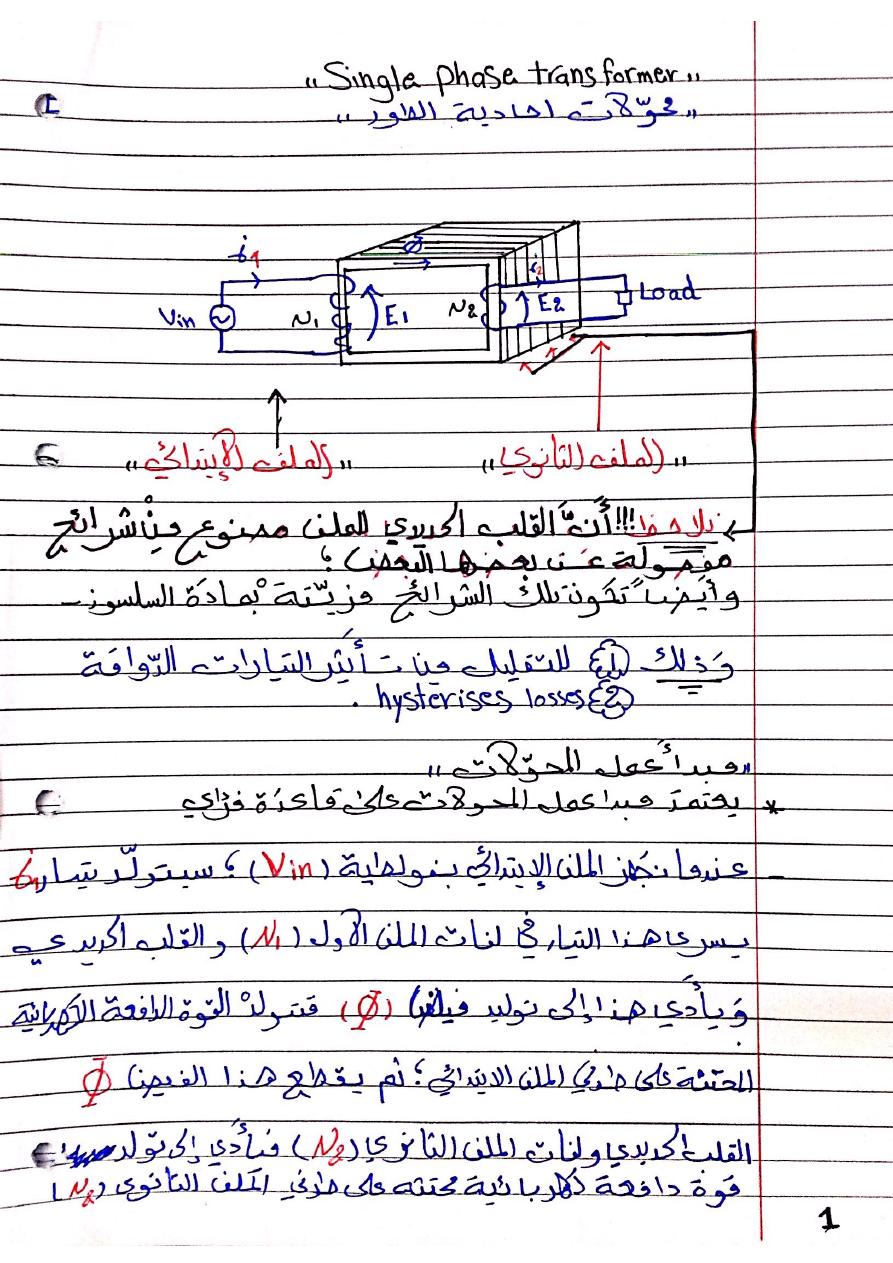 "Single phase transformer"
"محوّلات احادية الطور"
i1
Φ
i2
Vin
N1
E1
N2
E2
Load
"الملف الإبتدائي"
"الملف الثانوي"
نلاحظ!!! أنَّ القلب الحديدي للملف مصنوع مِنْ شرائح
مفصولة عن بعضها البعض؛
وأيضاً تكون تلك الشرائح مزيّتة بمادة السلسوز
وَذلك (1) للتقليل من تأثير التيارات الدّوامة
(2) hysterises losses.
"مبدأ عمل المحوّلات"
* يعتمد مبدا عمل المحولات على قاعدة فرداي
- عندما نجهز الملف الإبتدائي بفولطية (Vin)؛ سيتولّد تيار i1
يسري هذا التيار في لفات الملف الأول (N1) والقلب الحديدي
وَيأدي هذا إلى توليد فيض (Φ) فتتولد القوة الدافعة الكهربائية
المحتثة على طرفي الملف الابتدائي؛ ثم يقطع هذا الفيض Φ
القلب الحديدي ولفات الملف الثانوي (N2) فيأدي إلى تولد
قوة دافعة كهربائية محتثه على طرفي الملف الثانوي (N2)
1